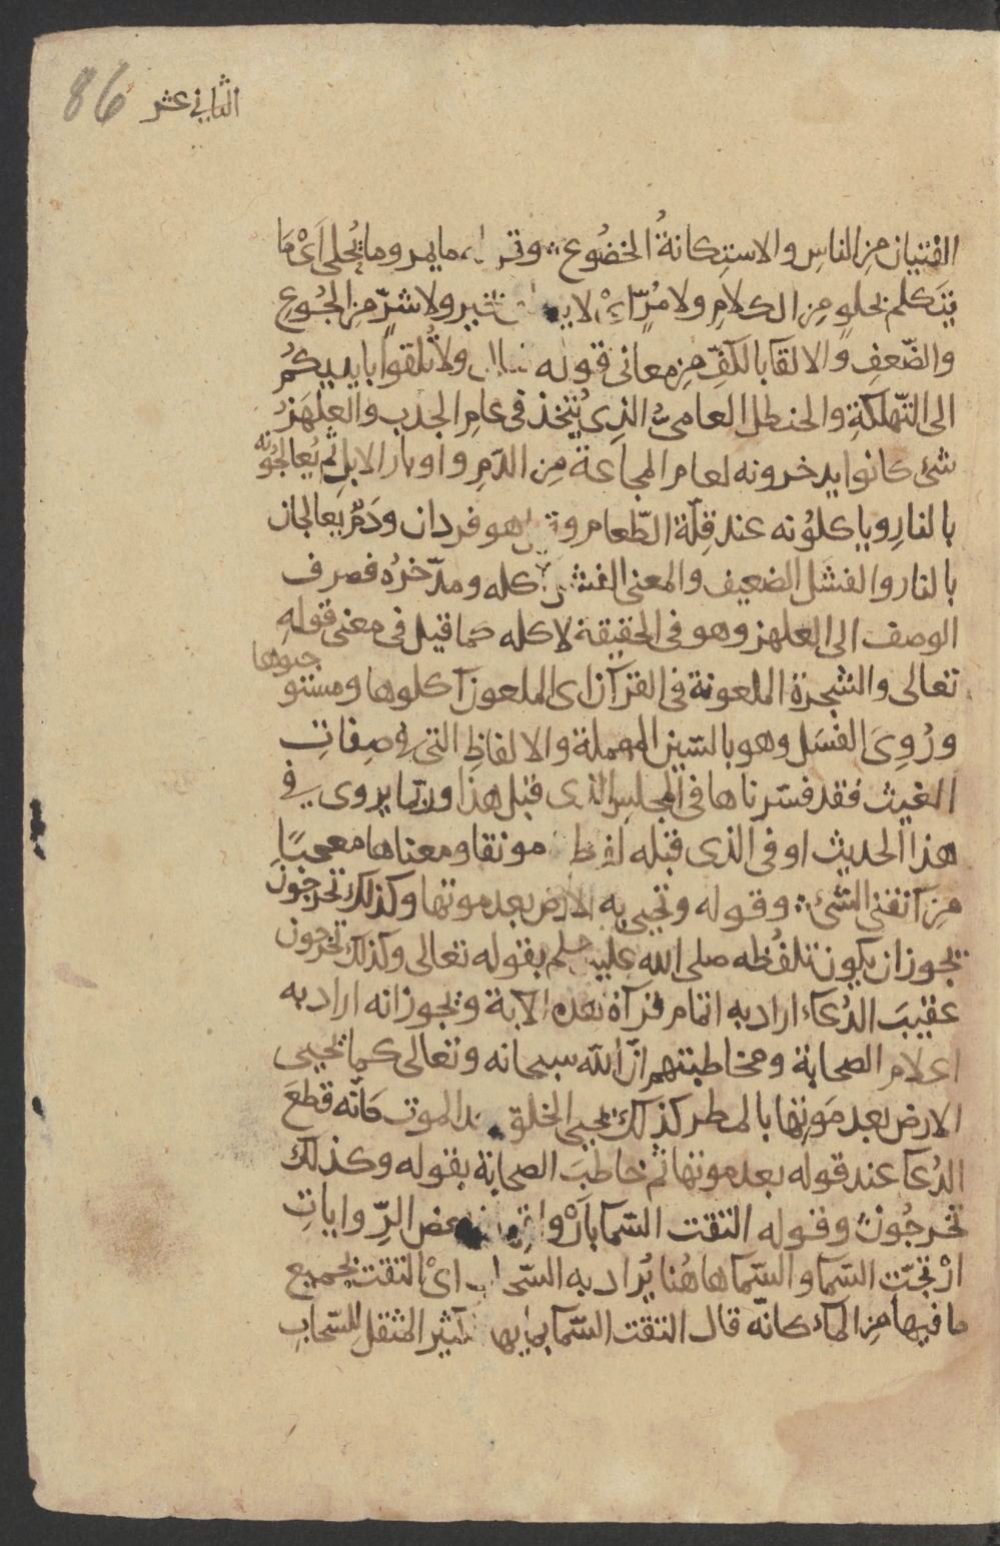 الثاني عشر 86
الفتيان مِن الناسِ والاستِكانةُ الخضُوع وقوله ما يمر وما يُحلى اَىْ مَا
يتَكلم بحلوٍ مِن الكلامِ ولا مُرٍّ اىْ لا بخير ولا شرٍّ مِن الجُوعِ
والضّعفِ والالقآ بالكفِّ مِن معانى قوله ولا تُلقوا بايديكُمْ
الى التّهلكَةِ والحنطل العامىُّ الذِى يُتّخذ فى عامِ الجدب والعِلهَز
شئ كانوا يدخرونه لعام المجاعة مِن الدّمِ واوبار الابلِ ثم يُعالجُونه
بالنارِ وياكلُونه عند قِلّة الطّعام وقيل هو قردان ودَمٌ يعالجان
بالنار والفشَل الضعيف والمعنى الفشل اكله ومدّخرُه فصرف
الوصف الى العلهز وهو فى الحقيقة لاكله كما قيل فى معنى قولهِ
تعالى والشجرة الملعونة فى القرآن اى الملعون آكلوها ومستوجبوها
ورُوِىَ الفسَل وهو بالسّين المهملة والالفاظِ التى فى صِفاتِ
الغيث فقد فسّرناها فى المجلسِ الذى قبل هذا وربّما يروى فى
هذا الحديث او فى الذى قبله لفظ مونقا ومعناها معجبًا
مِن آنقنى الشئ وقوله وتحيى به الارض بعد موتها وكذلك تخرجُون
يجوز ان يكون تلفُّظه صلى الله عليه وسلم بقوله تعالى وكذلك تخرجون
عقيبَ الدُعاء اراد به اتمام قرآة هذه الآية ويجوز انه اراد به
اعلام الصحابة ومخاطبتهم انّ الله سبحانه وتعالى كما يحيى
الارض بعد مَوتِها بالمطر كذلك يحيى الخلق بعد الموت كانّه قطعَ
الدُعآ عند قوله بعد موتها ثم خاطبَ الصحابة بقوله وكذلك
تخرجُون وقوله التقت السّمآ بعض الرّواياتِ
ارْتجّت السّمآ والسّمآ هاهُنا يُراد به السّحاب اىْ التقت بجميع
ما فيها مِن المآء كانّه قال التقت السّمآ بمايها الكثير المثقل للسّحابِ